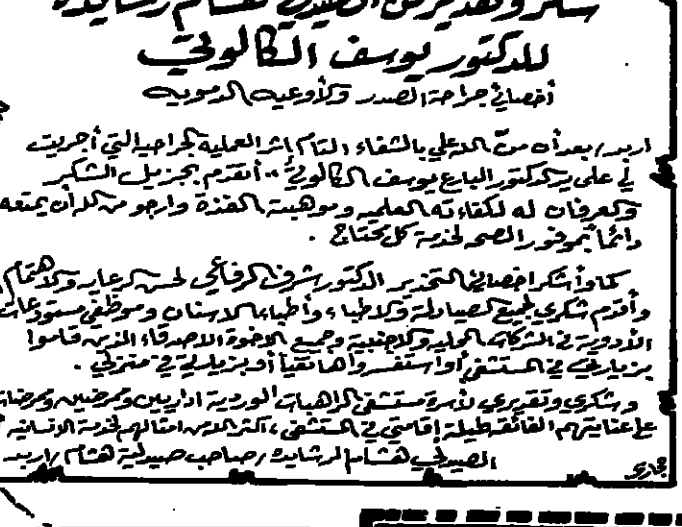 شكر وتقدير من الصيدلي هشام رشايده
للدكتور يوسف الكالوتي
أخصائي جراحة الصدر والأوعيه الدمويه
اربد / بعد أن منّ الله علي بالشفاء التام اثر العملية الجراحيه التي أجريت
لي على يد الدكتور البارع يوسف الكالوتي أتقدم بجزيل الشكر
والعرفان له لكفاءته العلميه وموهبته الفذة وارجو من الله أن يمتعه
دائماً بموفور الصحه لخدمة كل محتاج .
كما وأشكر اخصائي التخدير الدكتور شرف الرفاعي لحسن الرعايه والاهتمام
وأقدم شكري لجميع الصيادلة والاطباء وأطباء الاسنان وموظفي مستودعات
الأدوية في الشركات المحليه والاجنبية وجميع الاخوة الاصدقاء الذين قاموا
بزيارتي في المستشفى أو استفسروا هاتفياً أو بزيارتي في منزلي .
وشكري وتقديري لأسرة مستشفى الراهبات الوردية اداريين وممرضين وممرضات
على عنايتهم الفائقه طيلة إقامتي في المستشفى ، اكثر الله من امثالهم لخدمة الانسانيه
الصيدلي هشام الرشايده / صاحب صيدلية هشام / اربد